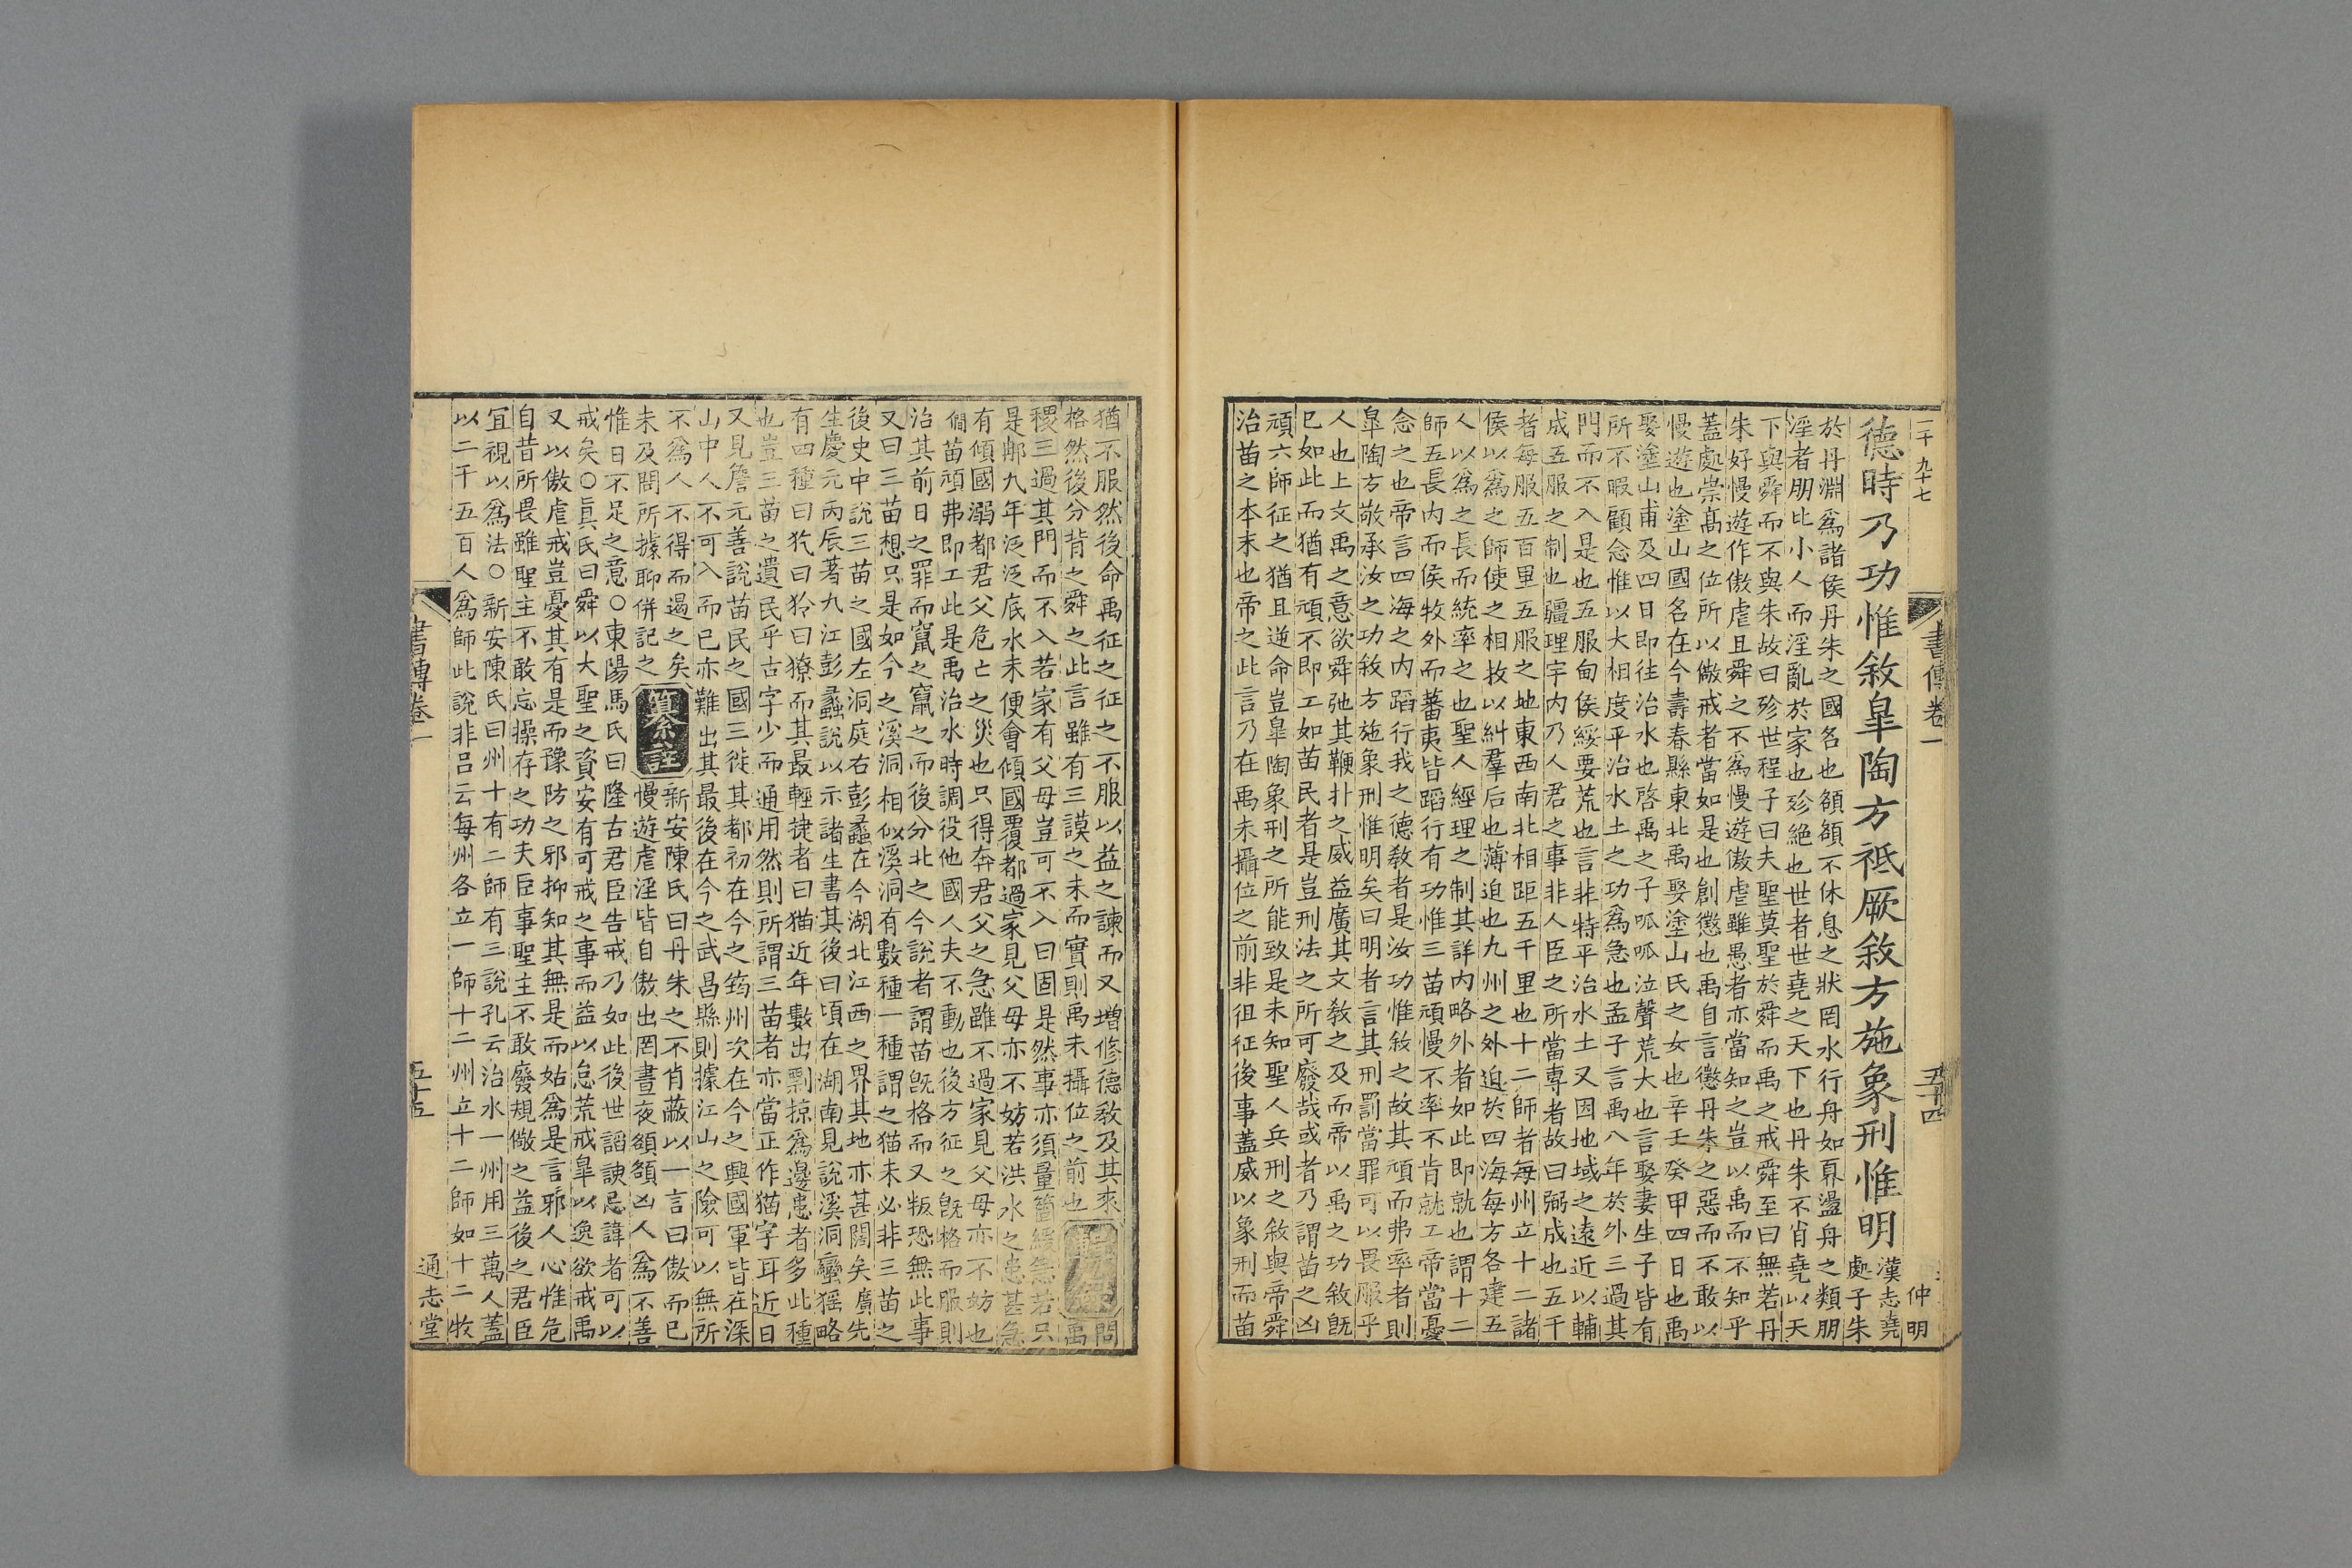 一千九十七
書傳卷一
五十四
仲明
德時乃功惟敘皐陶方祗厥敘方施象刑惟明
漢志堯
處子朱
於丹淵爲諸侯丹朱之國名也頟頟不休息之狀罔水行舟如奡盪舟之類朋
淫者朋比小人而淫亂於家也殄絶也世者世堯之天下也丹朱不肖堯以天
下與舜而不與朱故曰殄世程子曰夫聖莫聖於舜而禹之戒舜至曰無若丹
朱好慢遊作傲虐且舜之不爲慢遊傲虐雖愚者亦當知之豈以禹而不知乎
蓋處崇髙之位所以儆戒者當如是也創懲也禹自言懲丹朱之惡而不敢以
慢遊也塗山國名在今壽春縣東北禹娶塗山氏之女也辛壬癸甲四日也禹
娶塗山甫及四日即往治水也啓禹之子呱呱泣聲荒大也言娶妻生子皆有
所不暇顧念惟以大相度平治水土之功爲急也孟子言禹八年於外三過其
門而不入是也五服甸侯綏要荒也言非特平治水土又因地域之遠近以輔
成五服之制也疆理宇内乃人君之事非人臣之所當專者故曰弼成也五千
者每服五百里五服之地東西南北相距五千里也十二師者每州立十二諸
侯以爲之師使之相牧以糾羣后也薄迫也九州之外迫於四海每方各建五
人以爲之長而統率之也聖人經理之制其詳内略外者如此即就也謂十二
師五長内而侯牧外而蕃夷皆蹈行有功惟三苗頑慢不率不肯就工帝當憂
念之也帝言四海之内蹈行我之德敎者是汝功惟敘之故其頑而弗率者則
皐陶方敬承汝之功敘方施象刑惟明矣曰明者言其刑罰當罪可以畏服乎
人也上文禹之意欲舜弛其鞭扑之威益廣其文敎之及而帝以禹之功敘旣
已如此而猶有頑不即工如苗民者是豈刑法之所可廢哉或者乃謂苗之凶
頑六師征之猶且逆命豈皐陶象刑之所能致是未知聖人兵刑之敘與帝舜
治苗之本末也帝之此言乃在禹未攝位之前非徂征後事蓋威以象刑而苗
猶不服然後命禹征之征之不服以益之諫而又增修德敎及其來
格然後分背之舜之此言雖有三謨之末而實則禹未攝位之前也
問禹
稷三過其門而不入若家有父母豈可不入曰固是然事亦須量箇緩急若只
是那九年泛泛底水未便會傾國覆都過家見父母亦不妨若洪水之患甚急
有傾國溺都君父危亡之災也只得奔君父之急雖不過家見父母亦不妨也
僴苗頑弗即工此是禹治水時調役他國人夫不動也後方征之旣格而服則
治其前日之罪而竄之竄之而後分北之今說者謂苗旣格而又叛恐無此事
又曰三苗想只是如今之溪洞相似溪洞有數種一種謂之猫未必非三苗之
後史中說三苗之國左洞庭右彭蠡在今湖北江西之界其地亦甚闊矣廣先
生慶元丙辰著九江彭蠡說以示諸生書其後曰頃在湖南見說溪洞蠻猺略
有四種曰犵曰狑曰獠而其最輕捷者曰猫近年數出剽掠爲邊患者多此種
也豈三苗之遺民乎古字少而通用然則所謂三苗者亦當正作猫字耳近日
又見詹元善說苗民之國三徙其都初在今之筠州次在今之興國軍皆在深
山中人不可入而已亦難出其最後在今之武昌縣則據江山之險可以無所
不爲人不得而遏之矣新安陳氏曰丹朱之不肖蔽以一言曰傲而已
未及問所據聊併記之
纂註
慢遊虐淫皆自傲出罔晝夜頟頟凶人爲不善
惟日不足之意○東陽馬氏曰隆古君臣告戒乃如此後世謟諛忌諱者可以
戒矣○眞氏曰舜以大聖之資安有可戒之事而益以怠荒戒皐以逸欲戒禹
又以傲虐戒豈憂其有是而豫防之邪抑知其無是而姑爲是言邪人心惟危
自昔所畏雖聖主不敢忘操存之功夫臣事聖主不敢廢規儆之益後之君臣
宜視以爲法○新安陳氏曰州十有二師有三說孔云治水一州用三萬人蓋
以二千五百人爲師此說非吕云每州各立一師十二州立十二師如十二牧
書傳卷一
五十五
通志堂